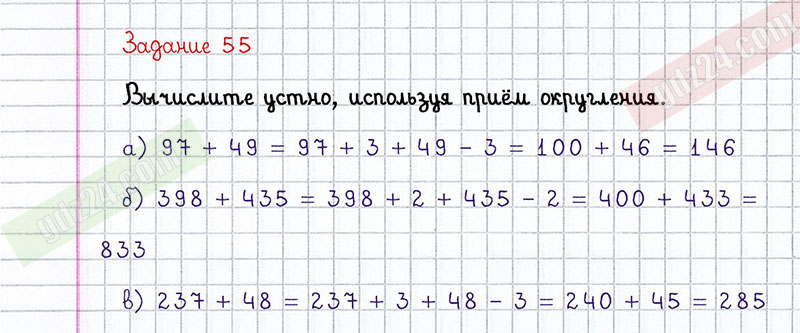 Задание 55
Вычислите устно, используя приём округления.
а) 97 + 49 = 97 + 3 + 49 - 3 = 100 + 46 = 146
б) 398 + 435 = 398 + 2 + 435 - 2 = 400 + 433 =
833
в) 237 + 48 = 237 + 3 + 48 - 3 = 240 + 45 = 285
gdz24.com
gdz24.com